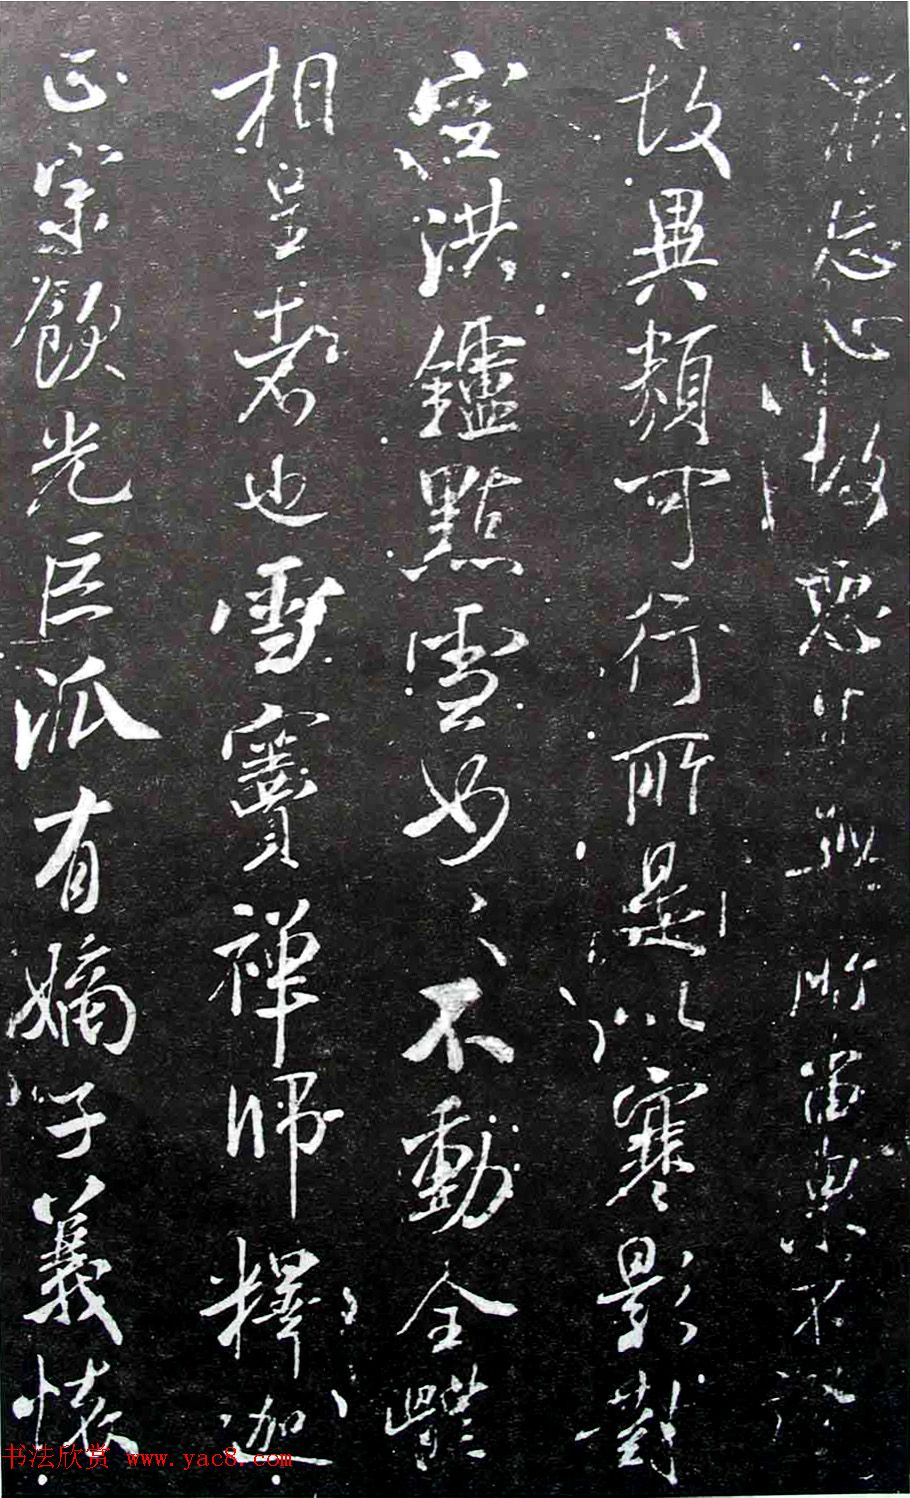 忘心故惡無所由果不證
故異類可行所是以寒影對
空洪鑪點雪如〻不動全體
相呈者也雪竇禪師釋迦
正宗飲光臣派有嫡子義懷
书法欣赏 www.yac8.com